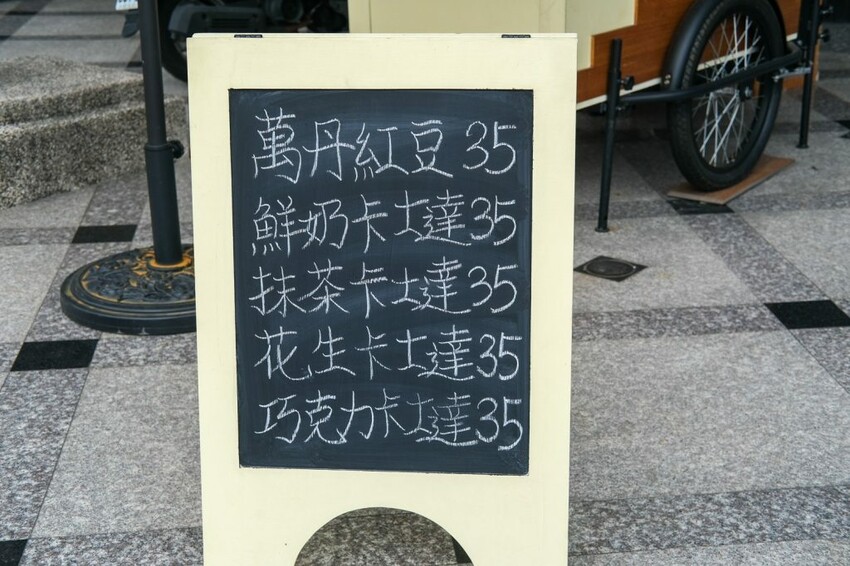 萬丹紅豆 35
鮮奶卡士達35
抹茶卡士達35
花生卡士達35
巧克力卡士達35